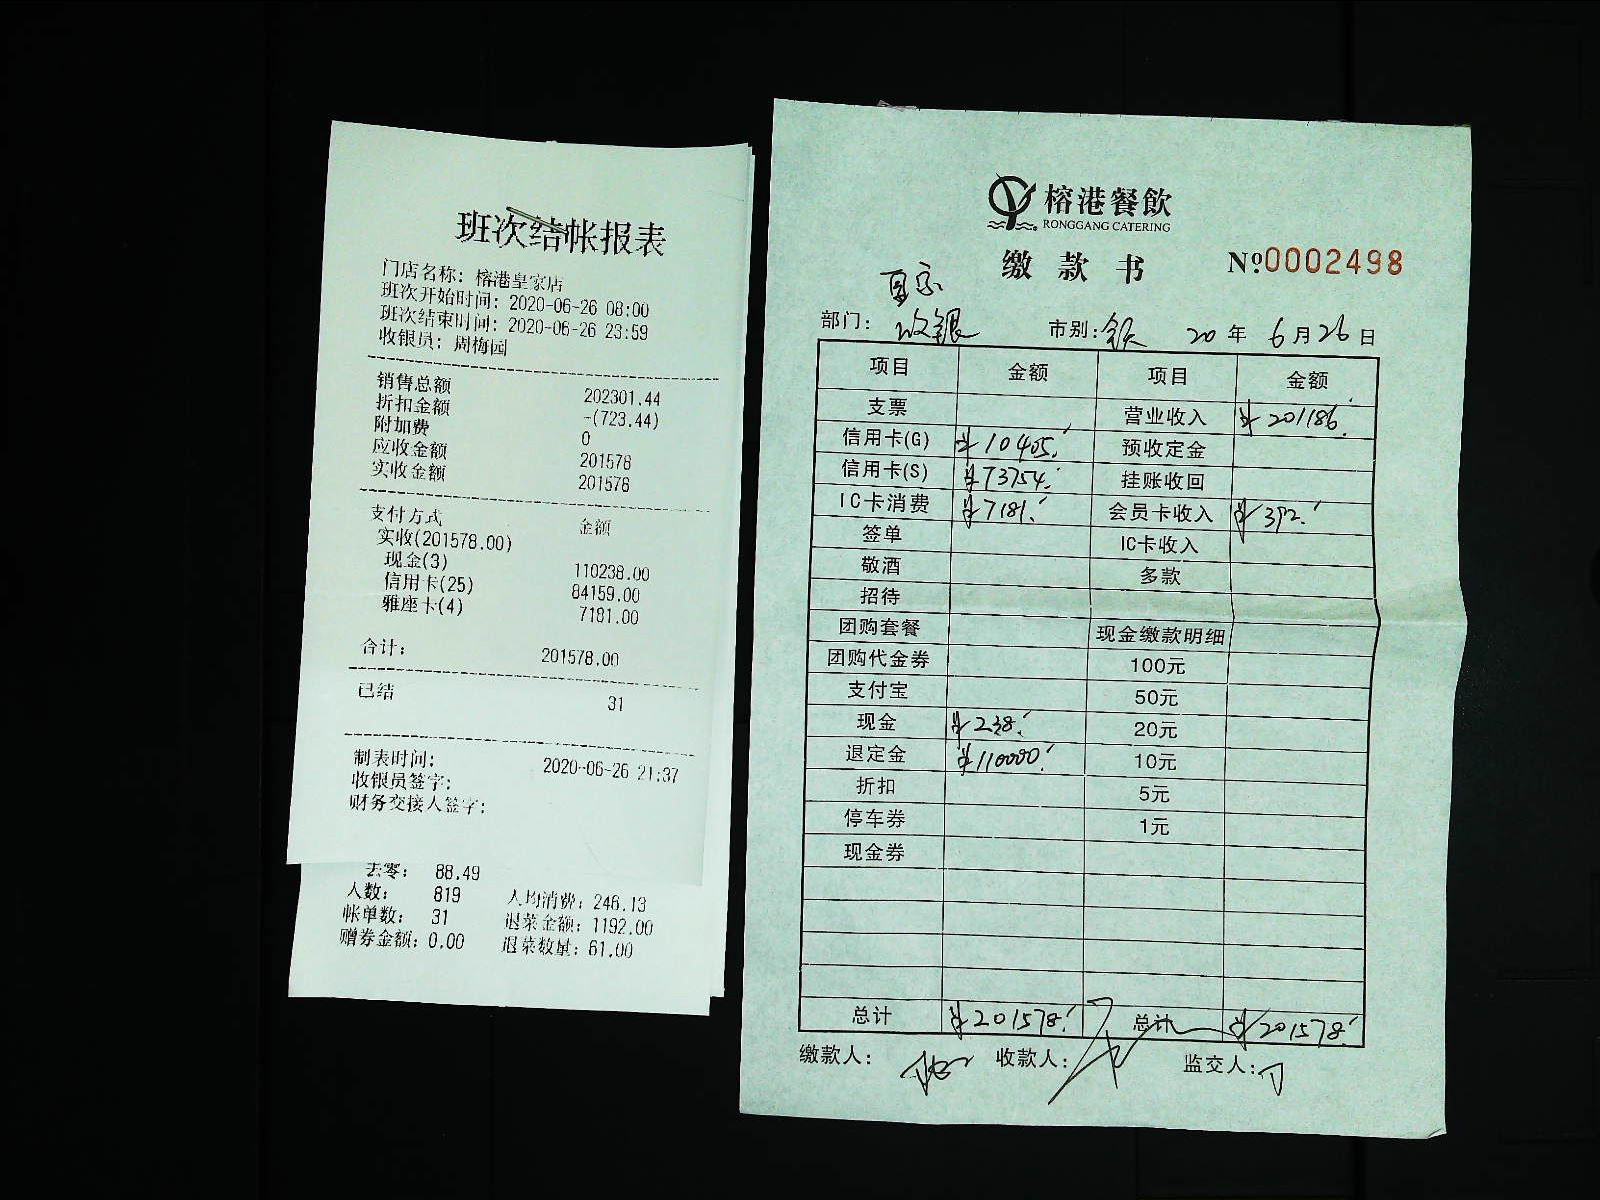 班次结帐报表
门店名称: 榕港皇家店
班次开始时间: 2020-06-26 08:00
班次结束时间: 2020-06-26 23:59
收银员: 周梅园
销售总额 202301.44
折扣金额 -(723.44)
附加费 0
应收金额 201578
实收金额 201578
支付方式 金额
实收(201578.00)
现金(3) 110238.00
信用卡(25) 84159.00
雅座卡(4) 7181.00
合计: 201578.00
已结 31
制表时间: 2020-06-26 21:37
收银员签字:
财务交接人签字:
去零: 88.49
人数: 819 人均消费: 246.13
帐单数: 31 退菜金额: 1192.00
赠券金额: 0.00 退菜数量: 61.00
榕港餐飲
RONGGANG CATERING
缴款书 Nº0002498
皇家
部门: 收银 市别: 20年6月26日
项目 金额 项目 金额
支票 营业收入 ¥201186.
信用卡(G) ¥10405. 预收定金
信用卡(S) ¥73754. 挂账收回
IC卡消费 ¥7181. 会员卡收入 ¥392.
签单 IC卡收入
敬酒 多款
招待
团购套餐 现金缴款明细
团购代金券 100元
支付宝 50元
现金 ¥238. 20元
退定金 ¥110000. 10元
折扣 5元
停车券 1元
现金券
总计 ¥201578. 总计 ¥201578.
缴款人: 收款人: 监交人: